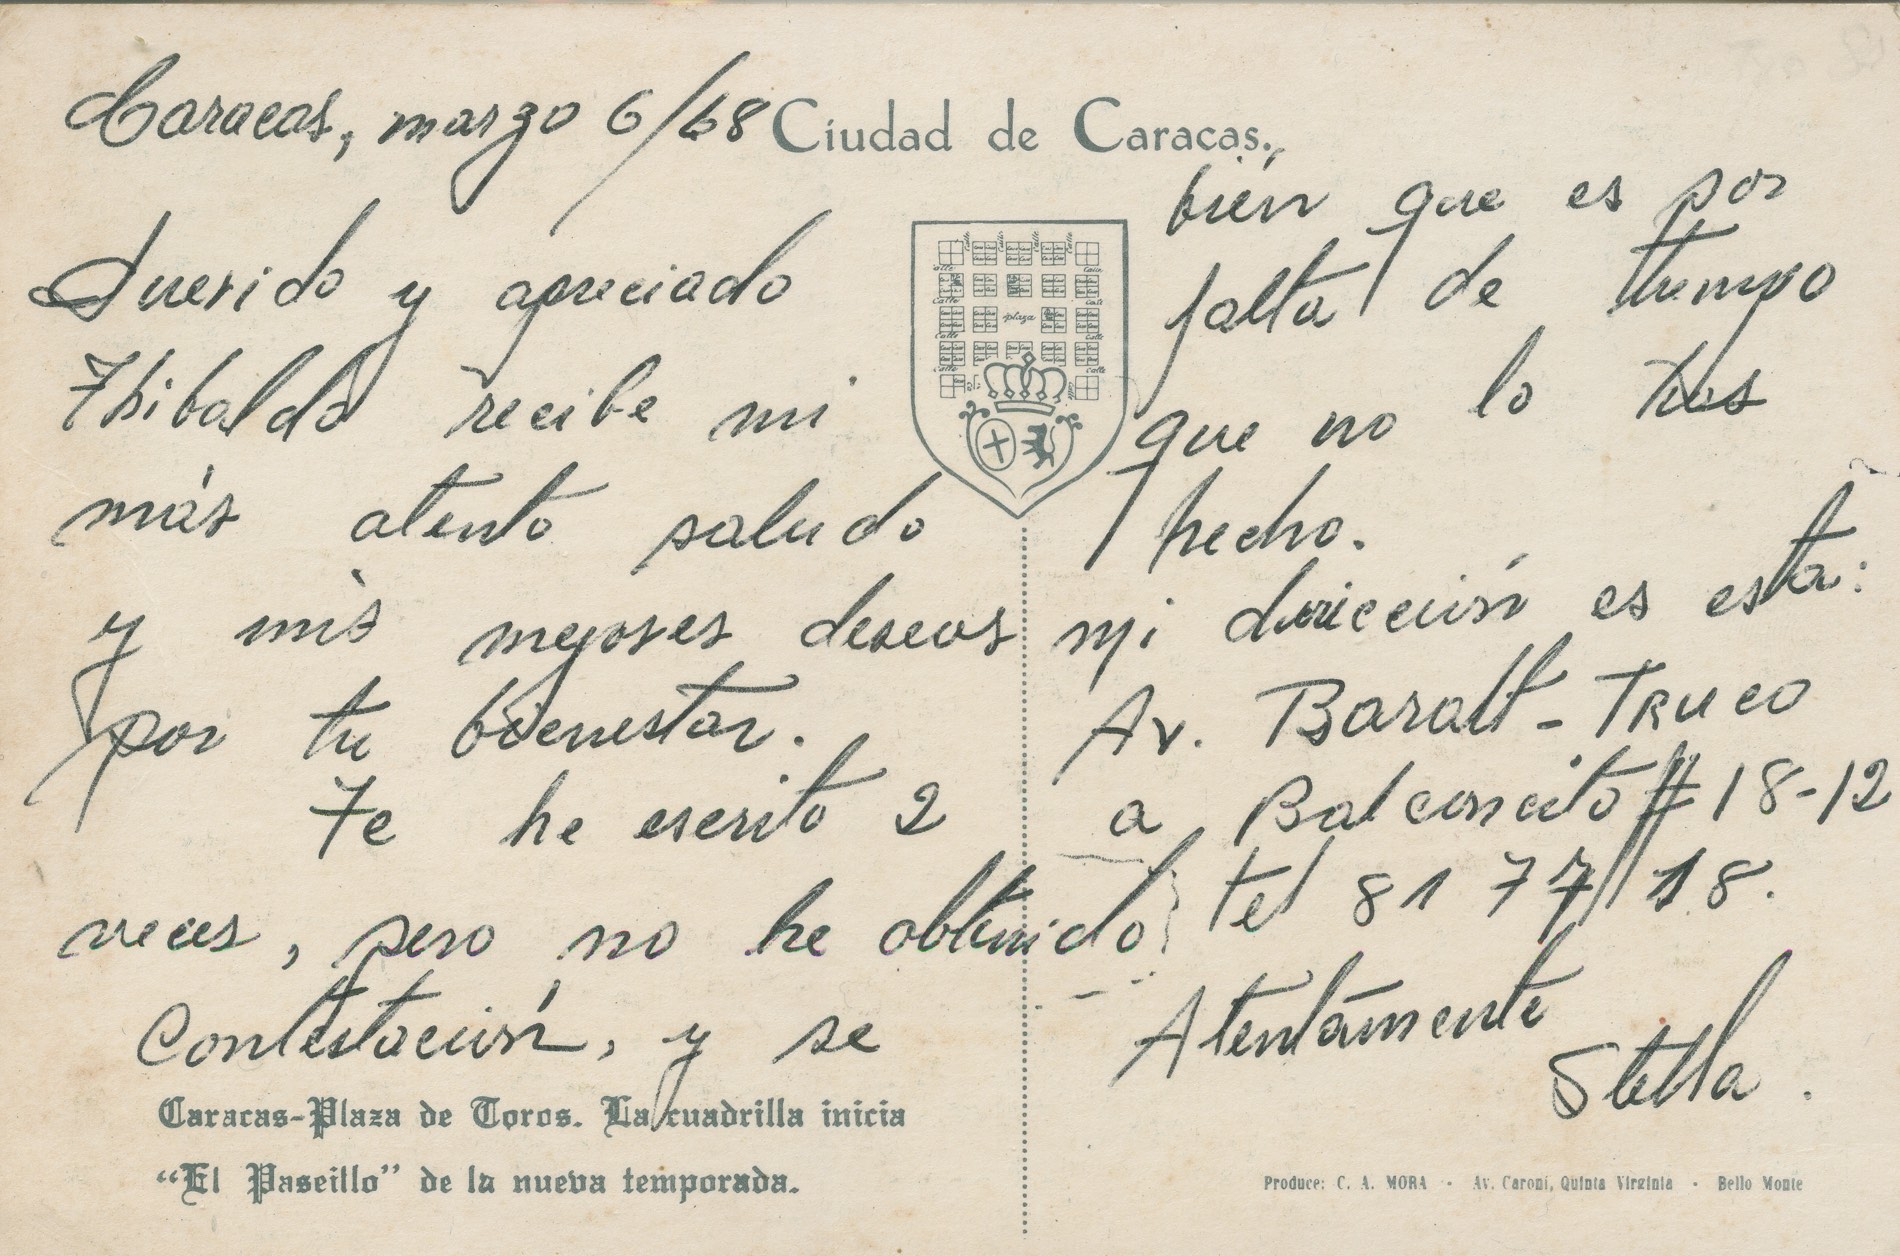 Caracas, marzo 6/68
Ciudad de Caracas.
Querido y apreciado
Thibaldo recibe mi
más atento saludo
y mis mejores deseos
por tu bienestar.
Te he escrito 2
veces, pero no he obtenido
Contestación, y se
bién que es por
falta de tiempo
que no lo has
hecho.
mi dirección es esta:
Av. Baralt - Truco
a Balconcito # 18-12
tel 81 77 18.
Atentamente
Stella.
Caracas-Plaza de Toros. La cuadrilla inicia
“El Paseillo” de la nueva temporada.
Produce: C. A. MORA - Av. Caroní, Quinta Virginia - Bello Monte